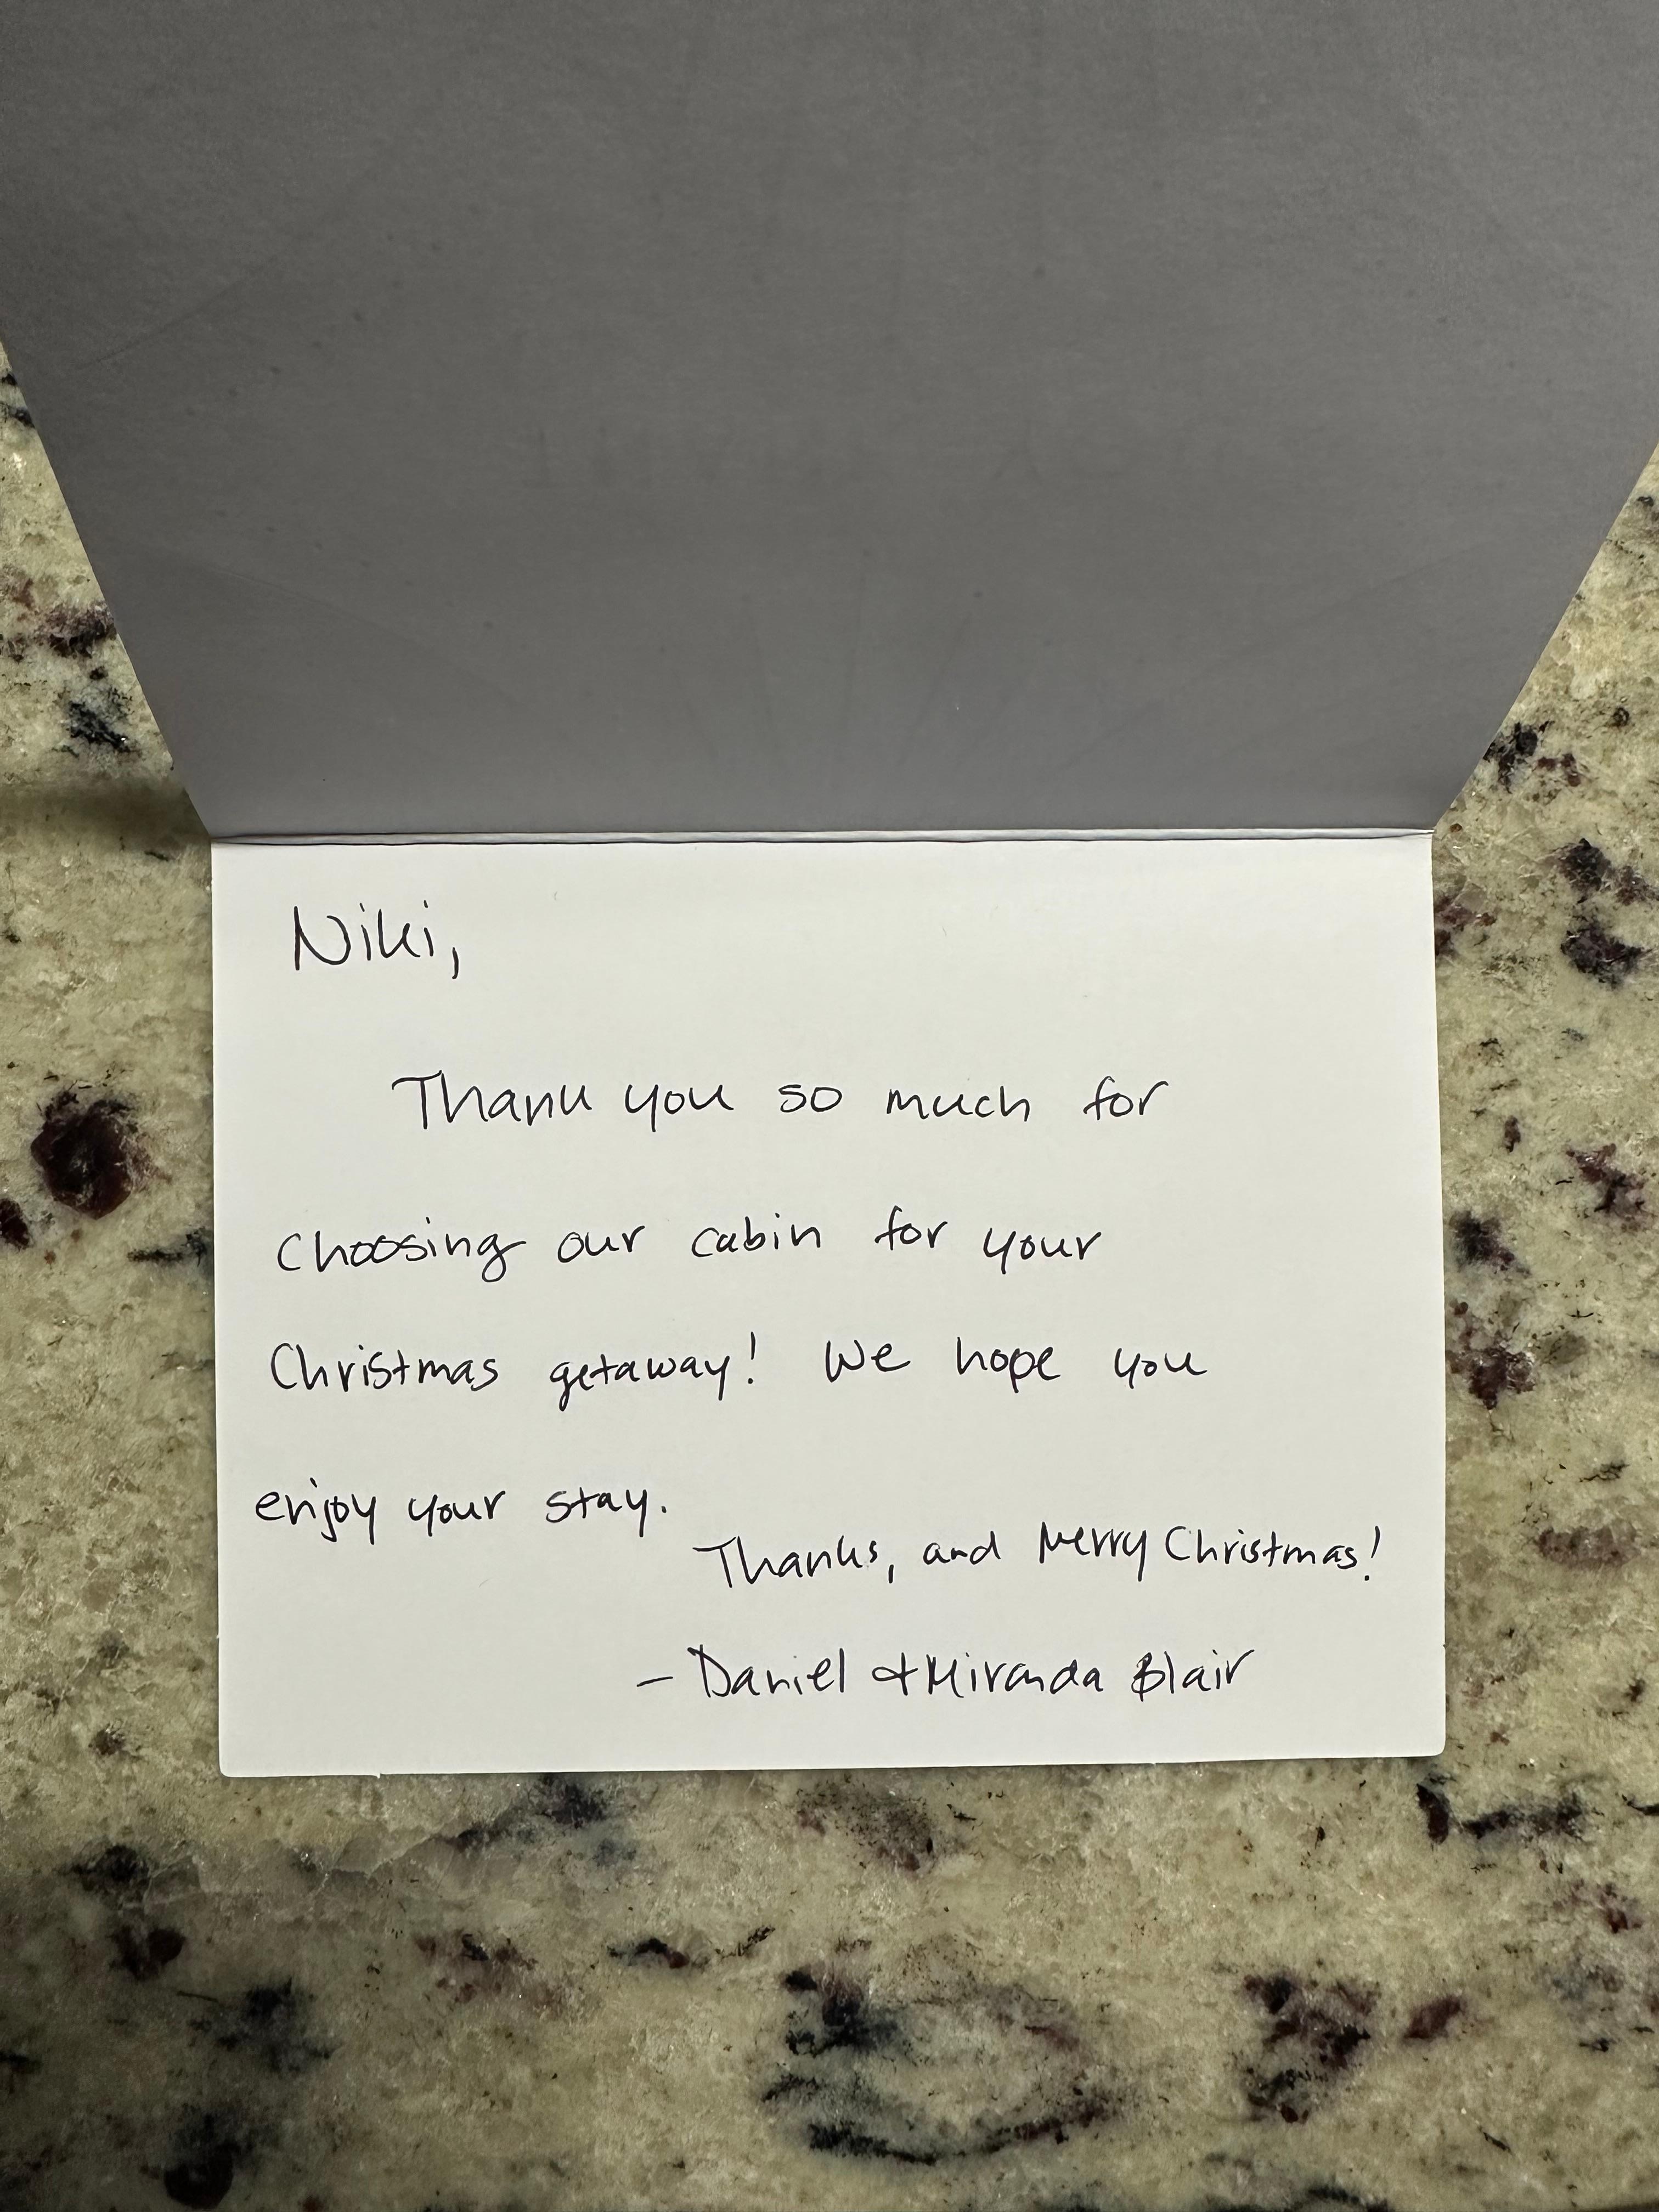 Niki,
Thank you so much for
choosing our cabin for your
Christmas getaway! We hope you
enjoy your stay.
Thanks, and Merry Christmas!
- Daniel + Miranda Blair